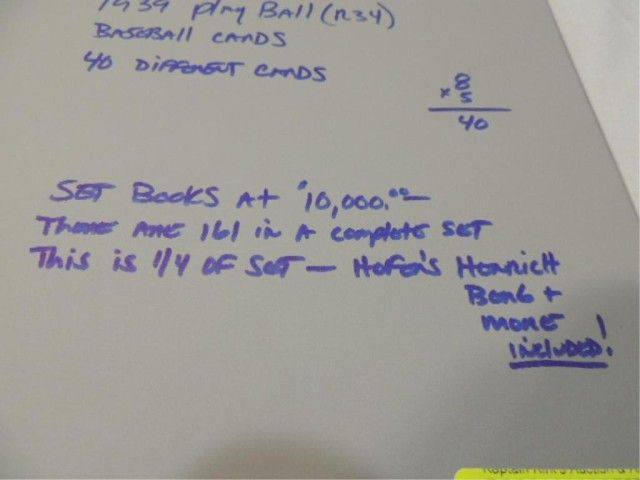 1939 Play Ball (R34)
BASEBALL CARDS
40 DIFFERENT CARDS
8
x 5
40
SET BOOKS At $10,000.00—
There ARE 161 in A complete SET
This is 1/4 OF SET — HoFer's Henrich
Berg +
more
INCLUDED!